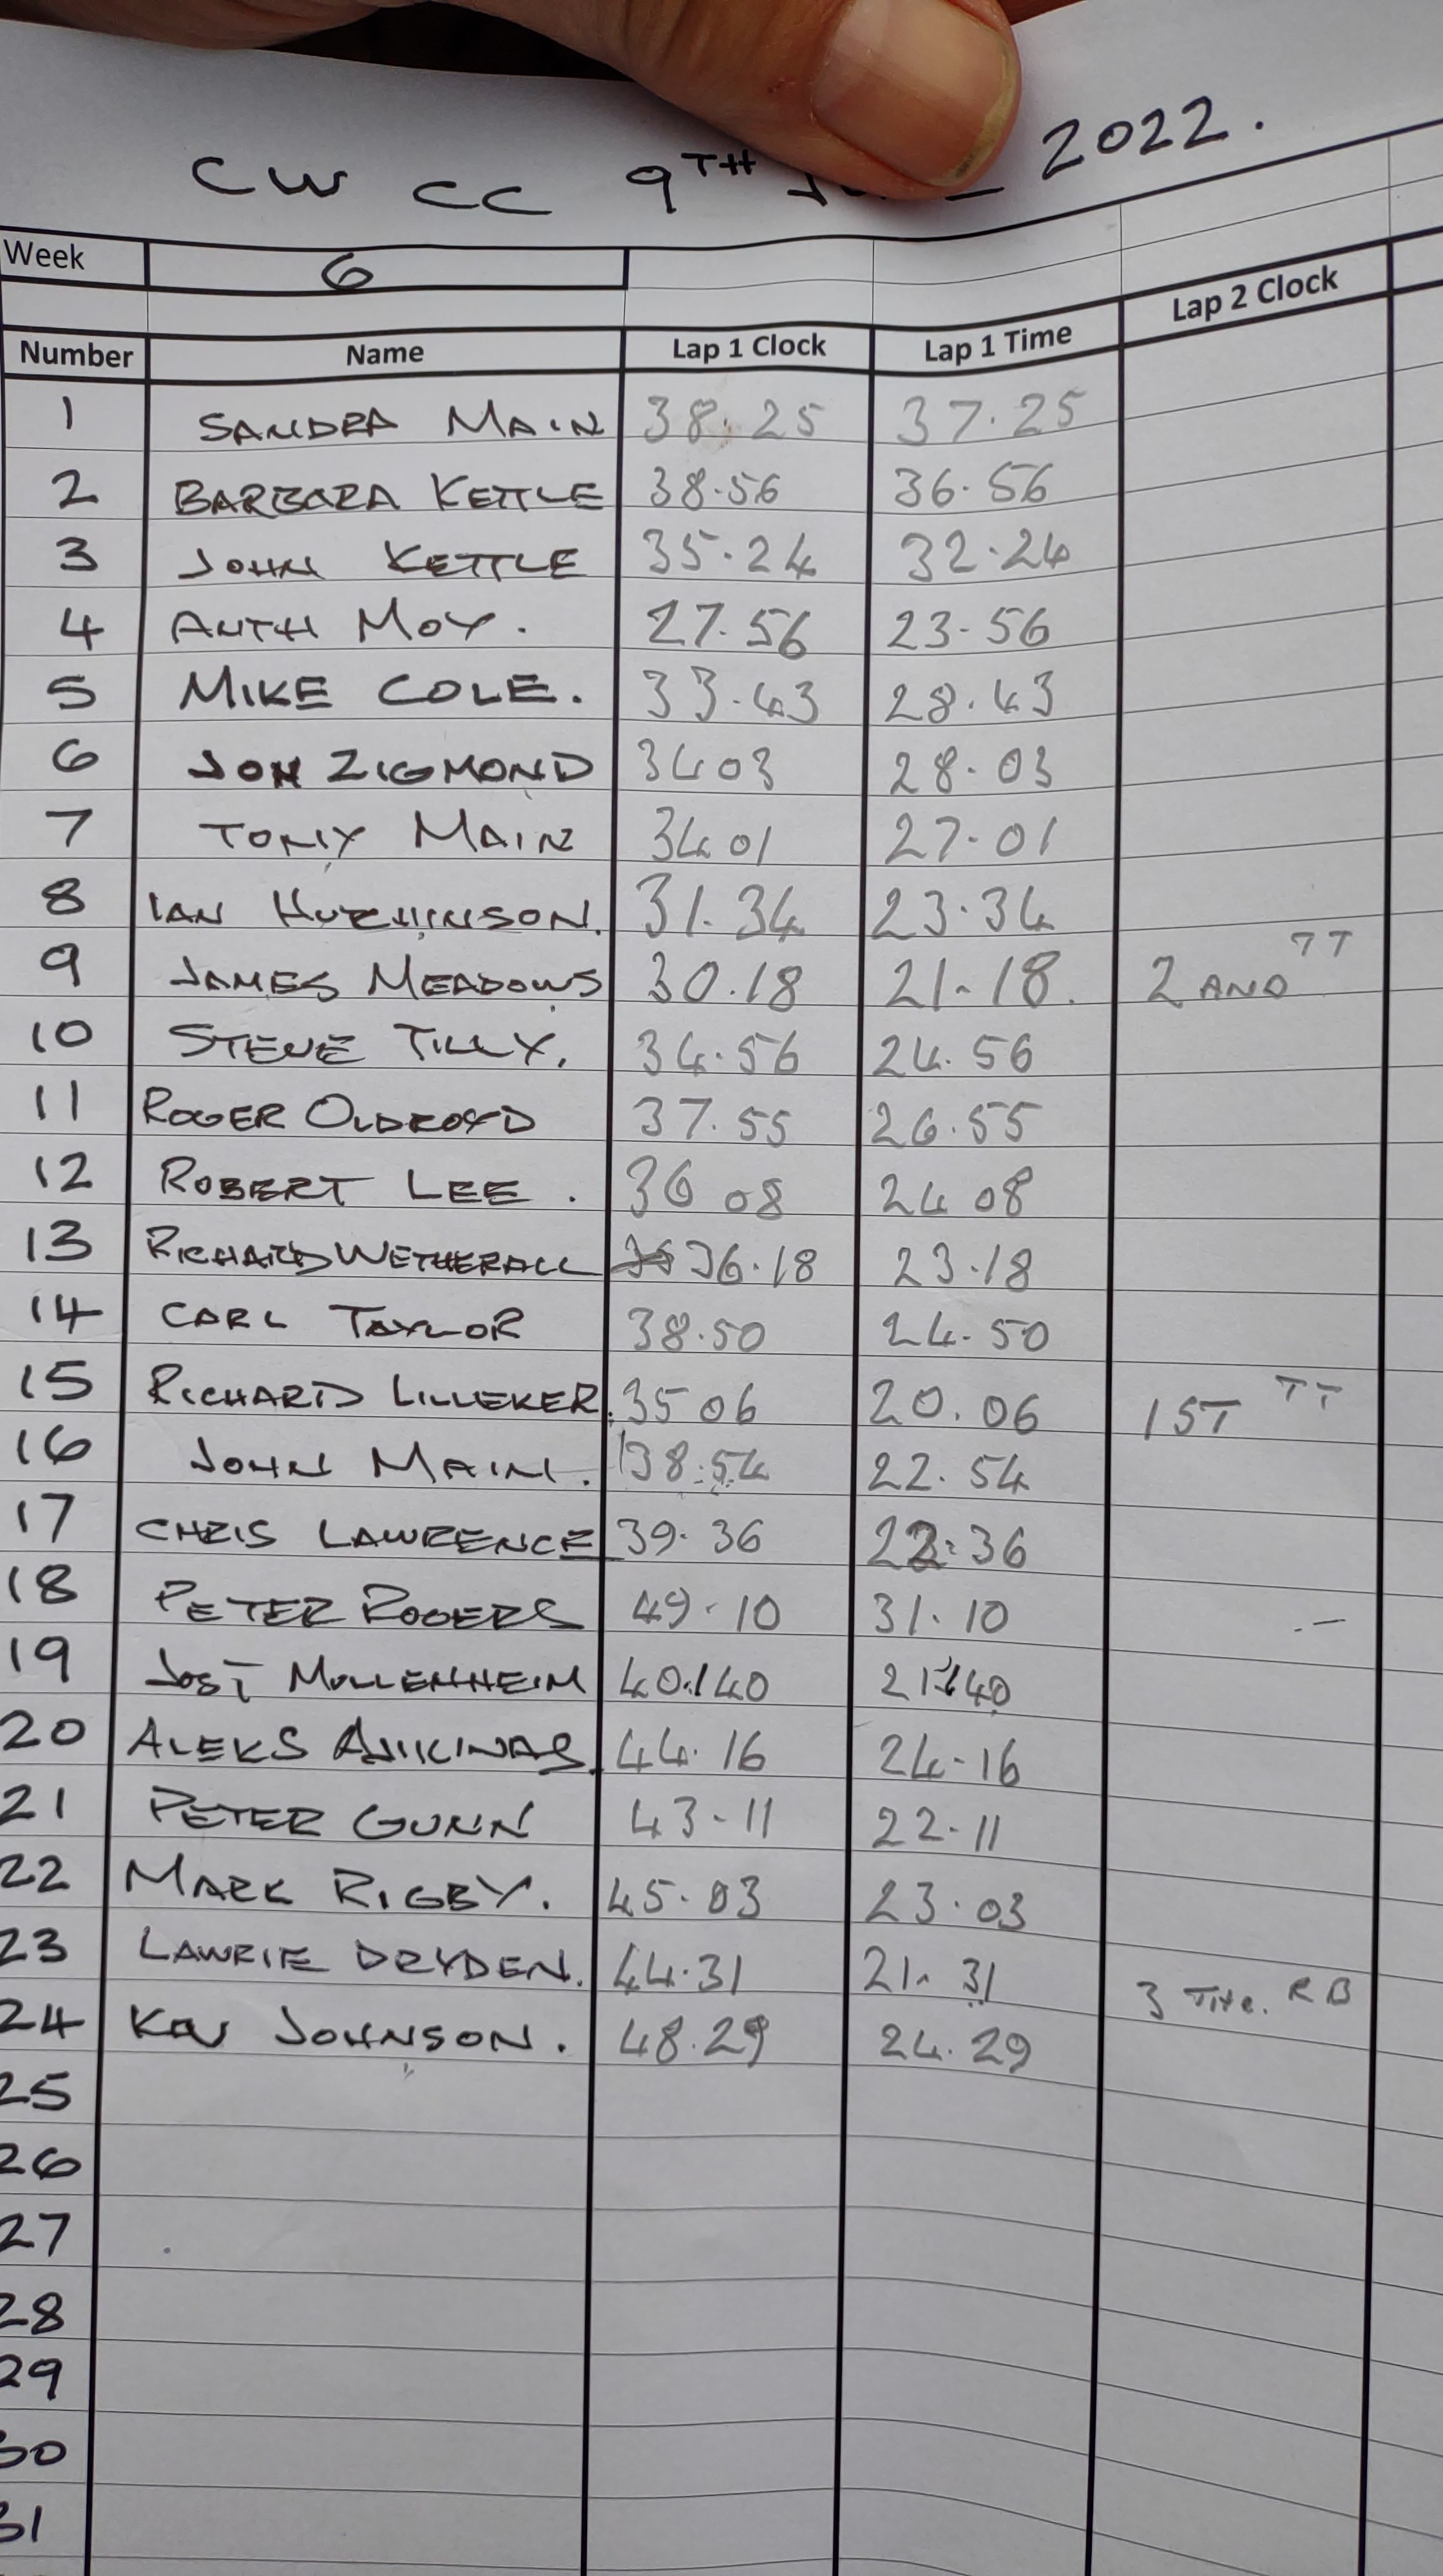 CW CC 9TH 2022.
Week 6
Number Name Lap 1 Clock Lap 1 Time Lap 2 Clock
1 SANDRA MAIN 38.25 37.25
2 BARBARA KETTLE 38.56 36.56
3 JOHN KETTLE 35.24 32.24
4 ANTH MOY. 27.56 23.56
5 MIKE COLE. 33.43 28.43
6 JON ZIGMOND 34 03 28.03
7 TONY MAIN 34 01 27.01
8 IAN HUTCHINSON. 31.34 23.34
9 JAMES MEADOWS 30.18 21.18. 2 AND TT
10 STEVE TILLY. 34.56 24.56
11 ROGER OLDROYD 37.55 26.55
12 ROBERT LEE. 36 08 24 08
13 RICHARD WETHERALL 36.18 23.18
14 CARL TAYLOR 38.50 24.50
15 RICHARD LILLEKER. 35 06 20.06 1ST TT
16 JOHN MAIN. 38.54 22.54
17 CHRIS LAWRENCE 39.36 22.36
18 PETER ROGERS 49.10 31.10
19 MULLENHEIM 40.40 21.40
20 ALEKS 44.16 24-16
21 PETER GUNN 43-11 22-11
22 MARK RIGBY. 45.03 23.03
23 LAWRIE DRYDEN. 44.31 21.31 3 RB
24 JOHNSON. 48.29 24.29
25
26
27
28
29
30
31